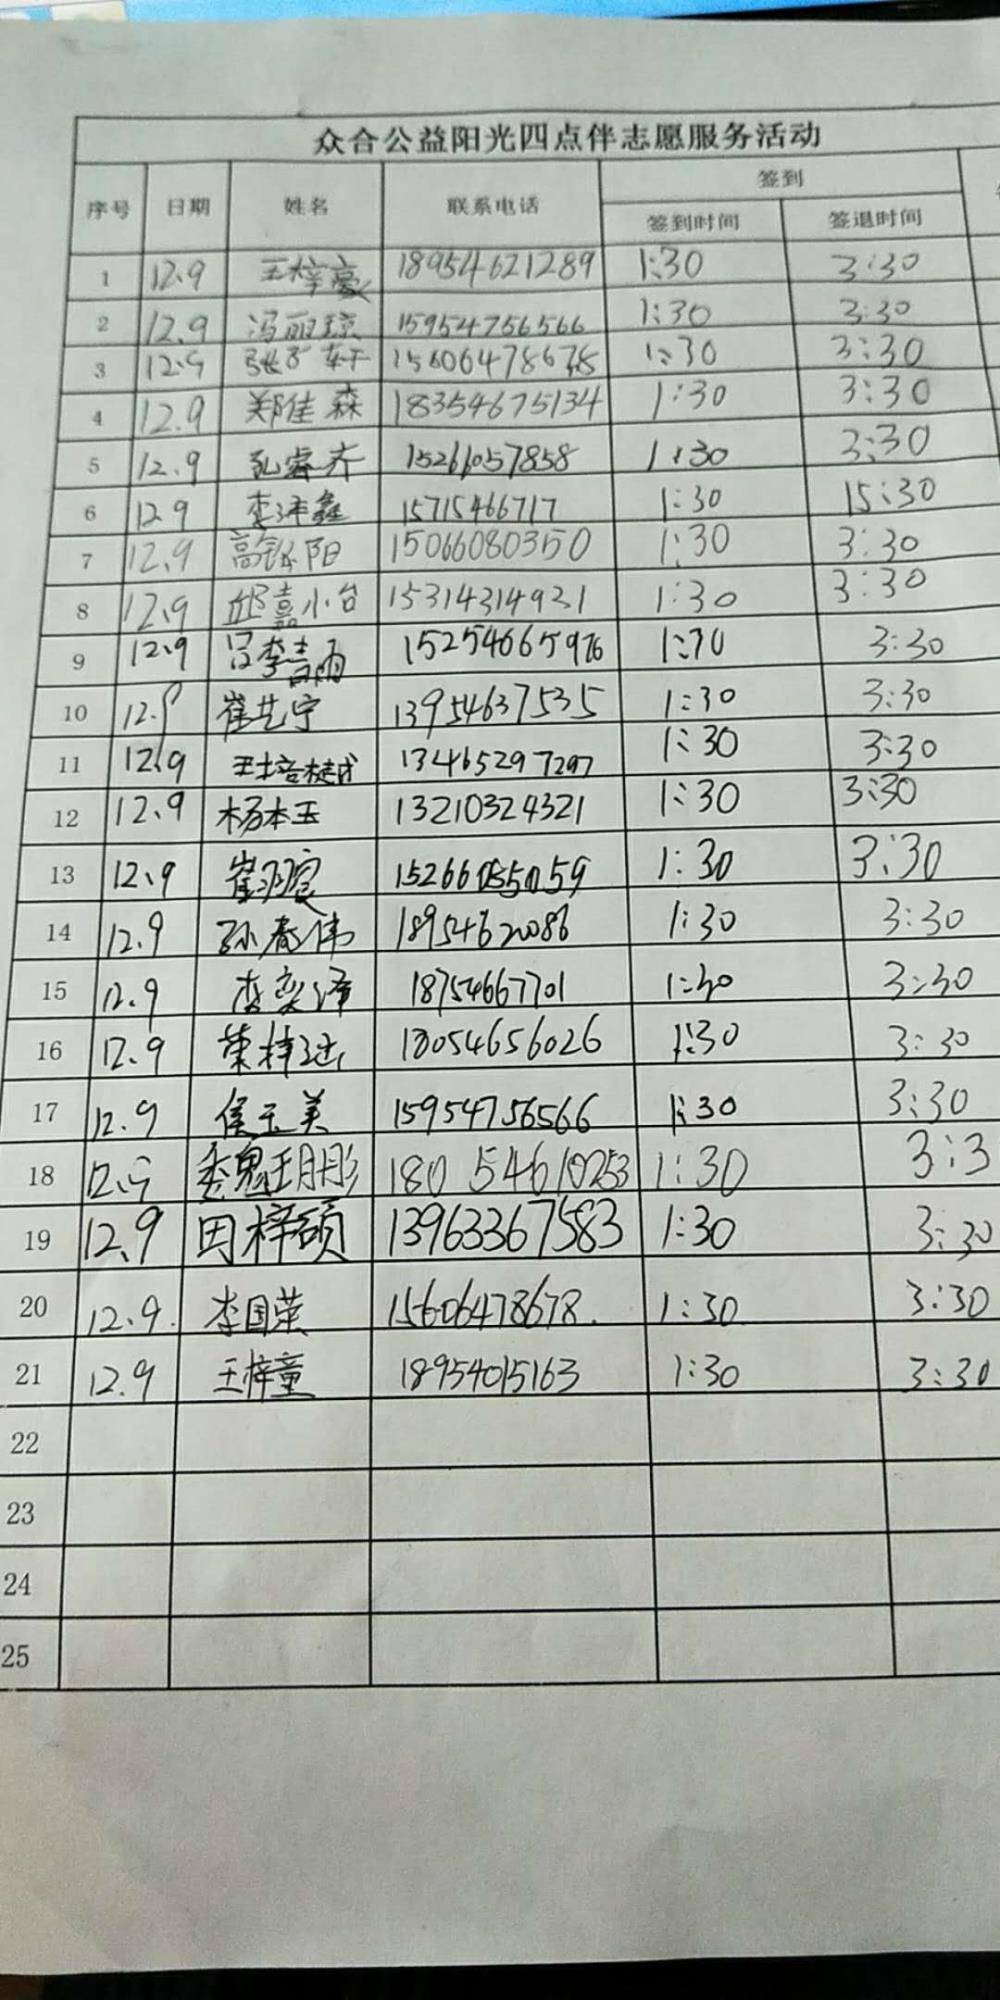 众合公益阳光四点伴志愿服务活动
序号 日期 姓名 联系电话 签到
签到时间 签退时间
1 12.9 王梓豪 18954621289 1:30 3:30
2 12.9 冯丽琼 15954756566 1:30 3:30
3 12.9 1560647867 1:30 3:30
4 12.9 郑佳森 18354675134 1:30 3:30
5 12.9 孔睿齐 15266057858 1:30 3:30
6 12.9 李泽鑫 15715466717 1:30 15:30
7 12.9 阳 15066080350 1:30 3:30
8 12.9 邱嘉小台 15314314921 1:30 3:30
9 12.9 吕李吉雨 1:30 3:30
10 12.9 崔艺宁 13954637535 1:30 3:30
11 12.9 王培越 13465297297 1:30 3:30
12 12.9 杨本玉 13210324321 1:30 3:30
13 12.9 崔 15266055059 1:30 3:30
14 12.9 孙春伟 18954620086 1:30 3:30
15 12.9 李奕泽 18754667701 1:30 3:30
16 12.9 荣梓 18054656026 1:30 3:30
17 12.9 侯玉美 15954756566 1:30 3:30
18 12.9 魏玥彤 1:30 3:3
19 12.9 田梓硕 13963367583 1:30 3:30
20 12.9. 李国荣 15606478678. 1:30 3:30
21 12.9 王梓童 18954015163 1:30 3:30
22
23
24
25